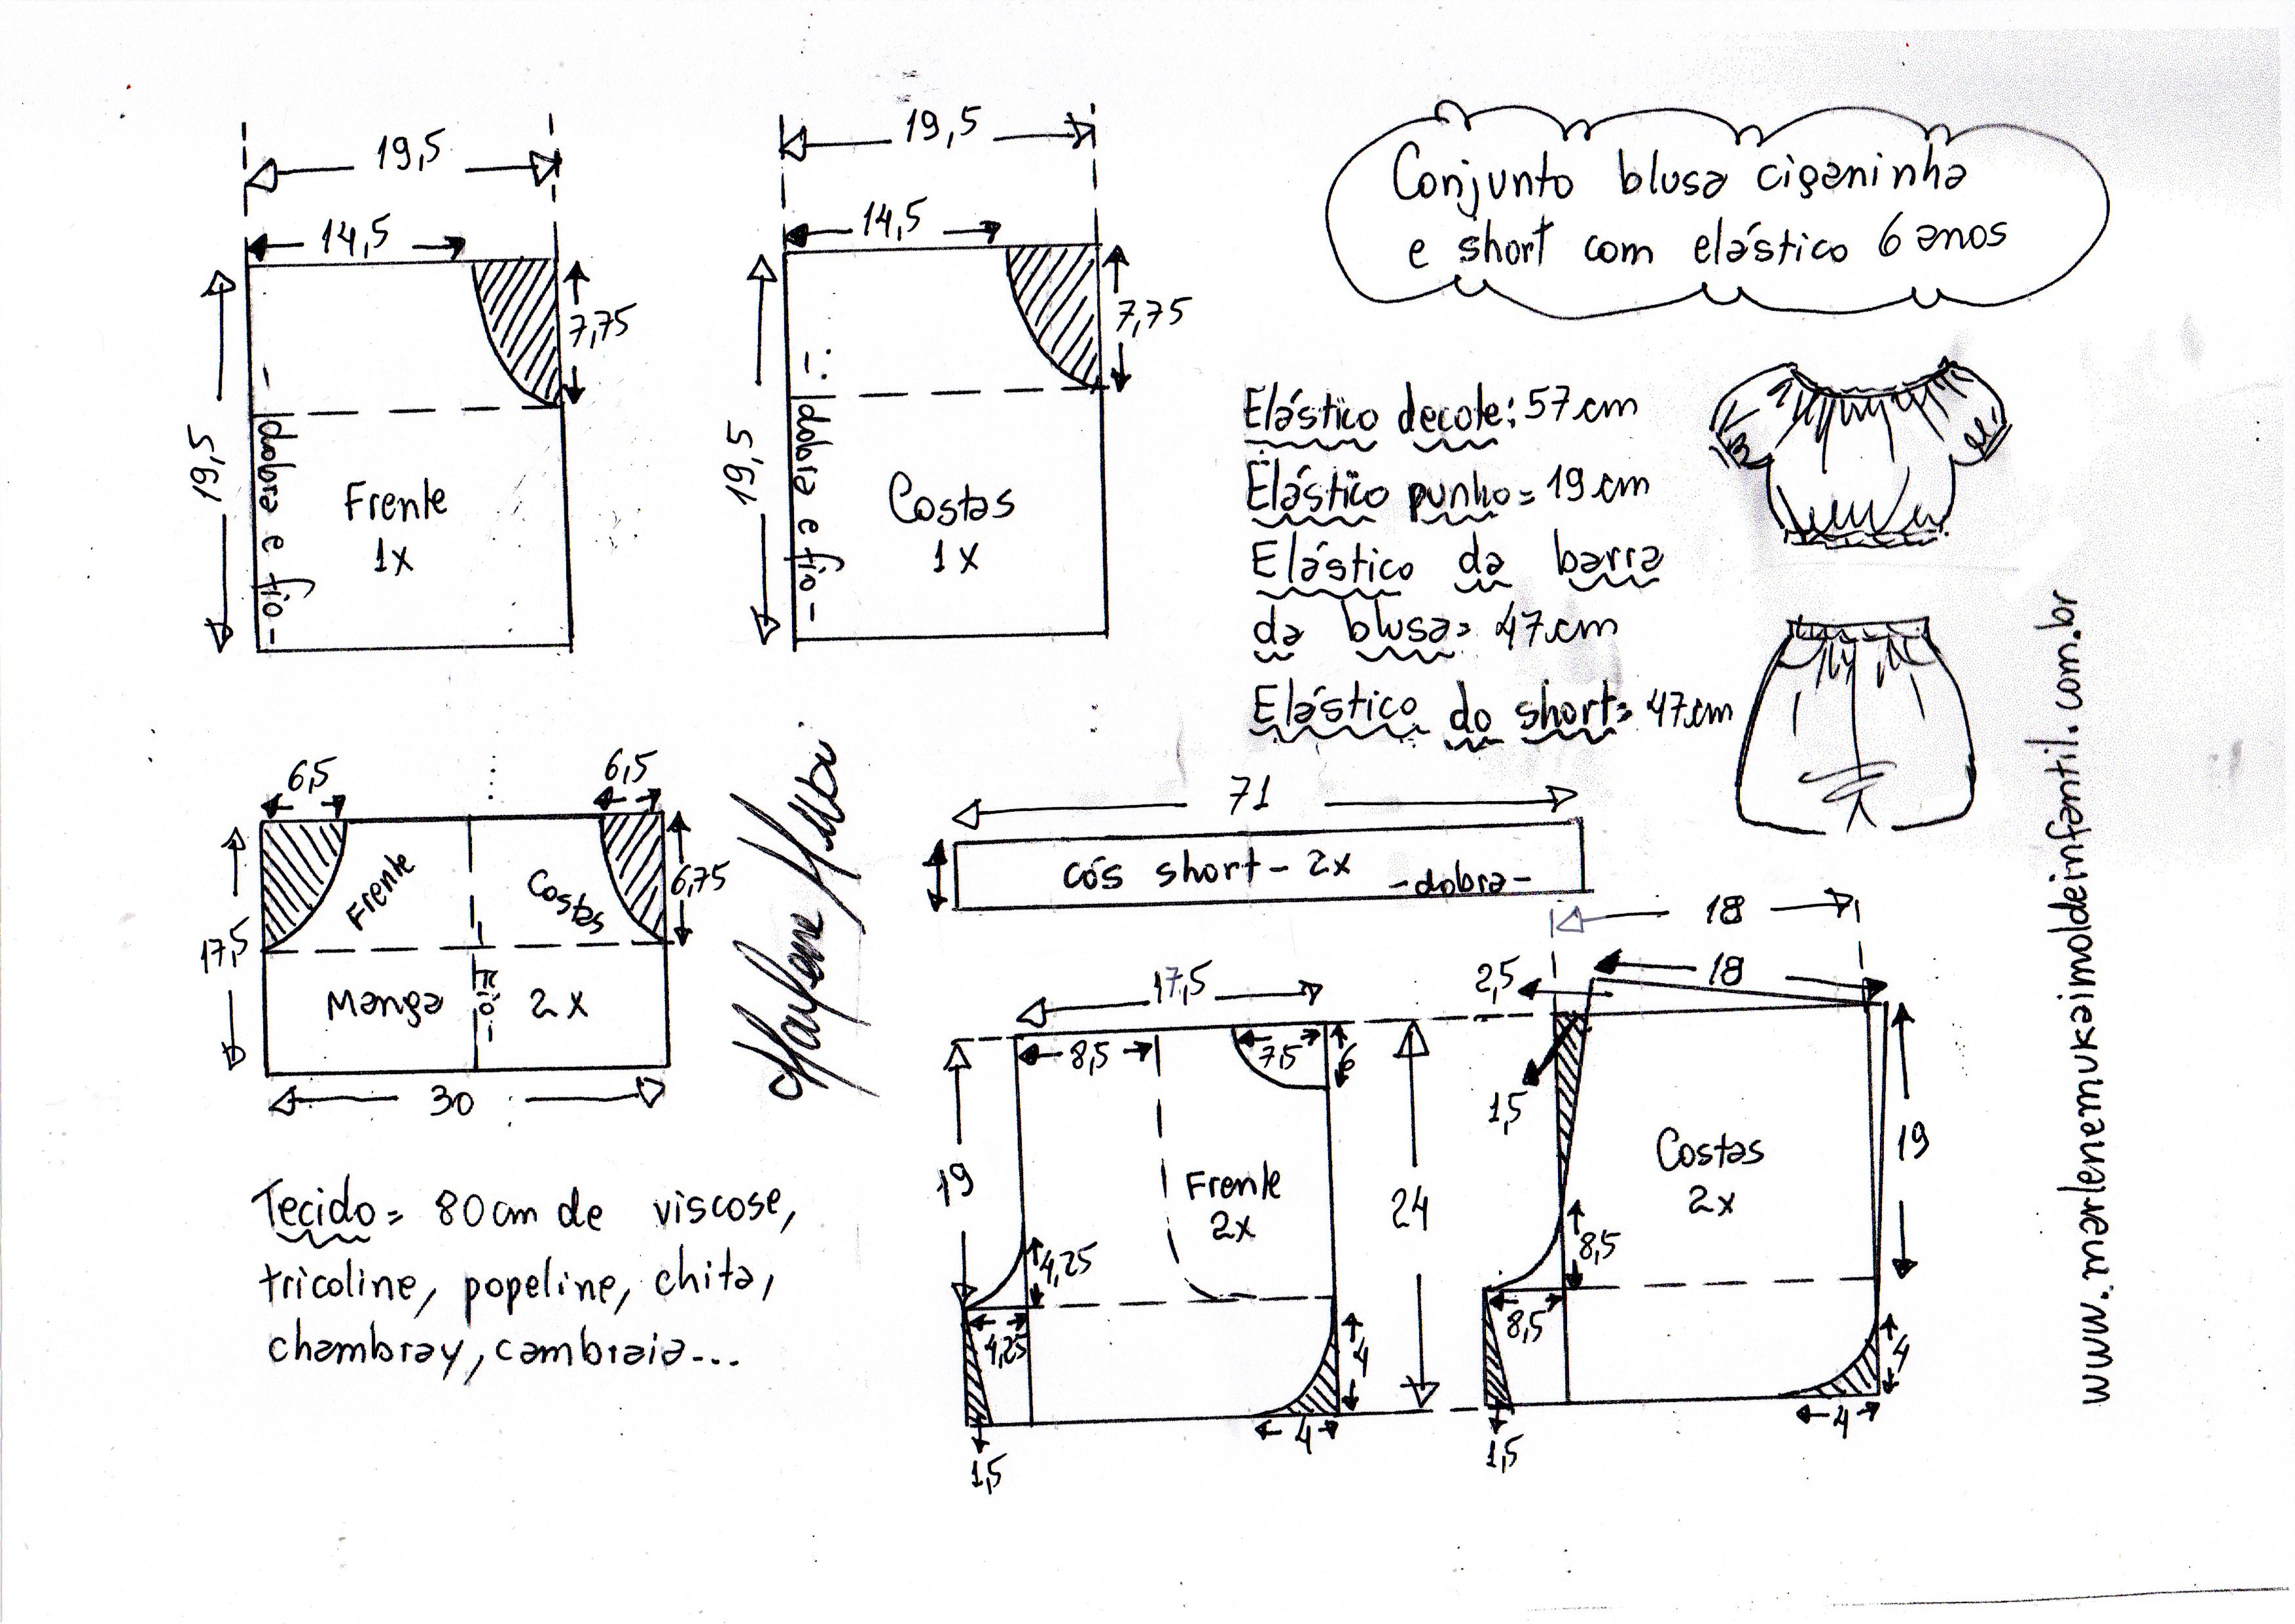 Conjunto blusa ciganinha
e short com elástico 6 anos
19,5
14,5
7,75
19,5
- dobra e fio -
Frente
1x
19,5
14,5
7,75
19,5
- dobra e fio -
Costas
1x
Elástico decote: 57cm
Elástico punho = 19cm
Elástico da barra
da blusa = 47cm
Elástico do short = 47cm
6,5
6,5
6,75
17,5
Frente
Costas
Manga
fio
2x
30
71
cós short - 2x -dobra-
17,5
8,5
7,5
6
19
24
Frente
2x
4,25
4,25
4
4
1,5
18
18
2,5
1,5
19
Costas
2x
8,5
8,5
4
4
1,5
Tecido = 80cm de viscose,
tricoline, popeline, chita,
chambray, cambraia...
www.marlenamukaimoldeinfantil.com.br